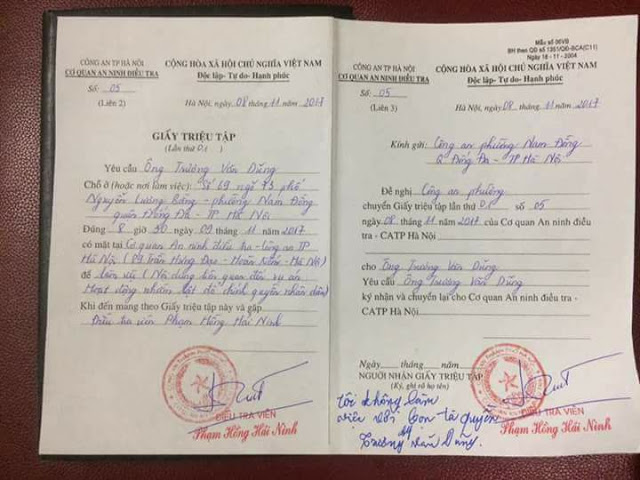 CÔNG AN TP HÀ NỘI
CƠ QUAN AN NINH ĐIỀU TRA
Số: 05
(Liên 2)
CỘNG HÒA XÃ HỘI CHỦ NGHĨA VIỆT NAM
Độc lập- Tự do- Hạnh phúc
Hà Nội, ngày 08 tháng 11 năm 2017
GIẤY TRIỆU TẬP
(Lần thứ 01)
Yêu cầu Ông Trương Văn Dũng
Chỗ ở (hoặc nơi làm việc): Số 69 ngõ 73 phố
Nguyễn Lương Bằng - phường Nam Đồng
quận Đống Đa - TP Hà Nội
Đúng 8 giờ 30 ngày 09 tháng 11 năm 2017
có mặt tại Cơ quan An ninh điều tra - Công an TP
Hà Nội (89 Trần Hưng Đạo - Hoàn Kiếm - Hà Nội)
để làm việc (Nội dung liên quan đến vụ án
Hoạt động nhằm lật đổ chính quyền nhân dân)
Khi đến mang theo Giấy triệu tập này và gặp
Điều tra viên Phạm Hồng Hải Ninh
ĐIỀU TRA VIÊN
Phạm Hồng Hải Ninh
Mẫu số 06VB
BH theo QĐ số 1351/QĐ-BCA(C11)
Ngày 18 - 11 - 2004
CÔNG AN TP HÀ NỘI
CƠ QUAN AN NINH ĐIỀU TRA
Số: 05
(Liên 3)
CỘNG HÒA XÃ HỘI CHỦ NGHĨA VIỆT NAM
Độc lập- Tự do- Hạnh phúc
Hà Nội, ngày 08 tháng 11 năm 2017
Kính gửi: Công an phường Nam Đồng
Q Đống Đa - TP Hà Nội
Đề nghị Công an phường
chuyển Giấy triệu tập lần thứ 01 số 05
ngày 08 tháng 11 năm 2017 của Cơ quan An ninh điều
tra - CATP Hà Nội
cho Ông Trương Văn Dũng
Yêu cầu Ông Trương Văn Dũng
ký nhận và chuyển lại cho Cơ quan An ninh điều tra -
CATP Hà Nội
Ngày tháng năm
NGƯỜI NHẬN GIẤY TRIỆU TẬP
(Ký, ghi rõ họ tên)
Tôi không làm
việc với bọn tà quyền
Trương Văn Dũng
ĐIỀU TRA VIÊN
Phạm Hồng Hải Ninh